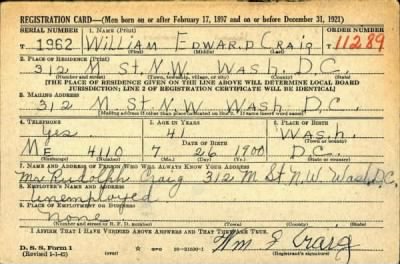 REGISTRATION CARD—(Men born on or after February 17, 1897 and on or before December 31, 1921)
SERIAL NUMBER 1. NAME (Print) ORDER NUMBER
T 1962 William Edward Craig T11289
(First) (Middle) (Last)
2. PLACE OF RESIDENCE (Print)
312 M St N.W. Wash D.C.
(Number and street) (Town, township, village, or city) (County) (State)
[THE PLACE OF RESIDENCE GIVEN ON THE LINE ABOVE WILL DETERMINE LOCAL BOARD
JURISDICTION; LINE 2 OF REGISTRATION CERTIFICATE WILL BE IDENTICAL]
3. MAILING ADDRESS
312 M St N.W. Wash D.C.
[Mailing address if other than place indicated on line 2. If same insert word same]
4. TELEPHONE 5. AGE IN YEARS 6. PLACE OF BIRTH
Yes 41 Wash.
DATE OF BIRTH (Town or county)
ME 4110 7 26 1900 D.C.
(Exchange) (Number) (Mo.) (Day) (Yr.) (State or country)
7. NAME AND ADDRESS OF PERSON WHO WILL ALWAYS KNOW YOUR ADDRESS
Rudolph Craig 312 M St N.W. Wash, D.C.
8. EMPLOYER'S NAME AND ADDRESS
Unemployed
9. PLACE OF EMPLOYMENT OR BUSINESS
None
(Number and street or R. F. D. number) (Town) (County) (State)
I AFFIRM THAT I HAVE VERIFIED ABOVE ANSWERS AND THAT THEY ARE TRUE.
D. S. S. Form 1 GPO Wm E Craig
(Revised 1-1-42) (Registrant's signature)